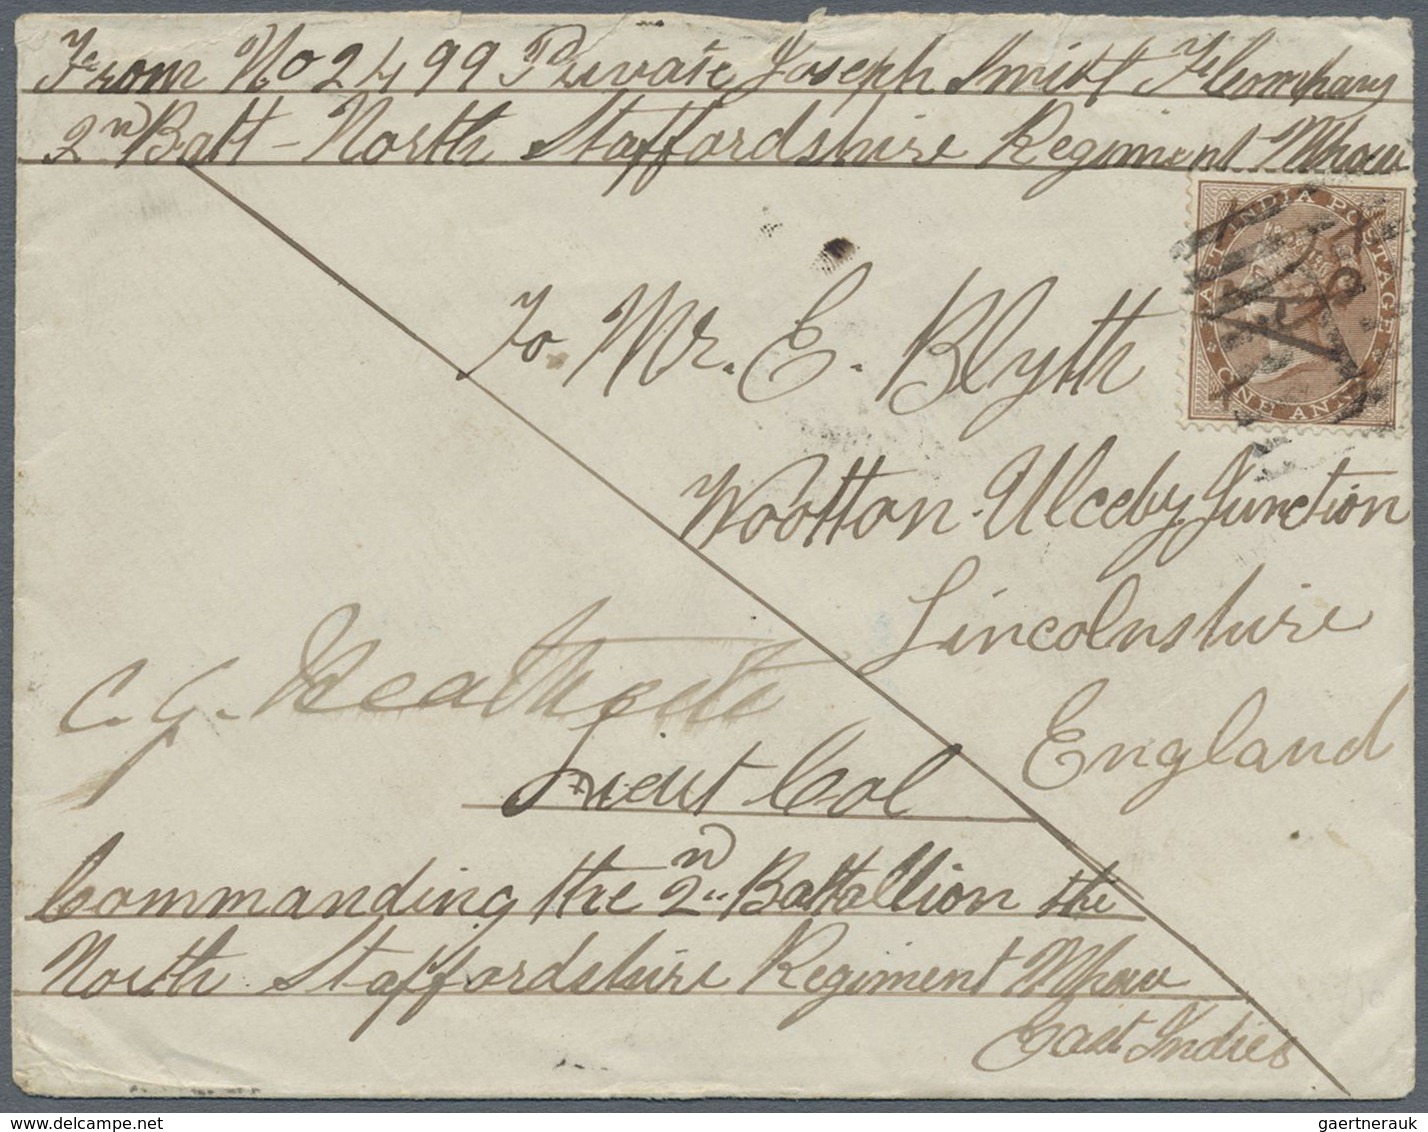 From No 2499 Private Joseph Smith F Company
2nd Batt - North Staffordshire Regiment Mhow
EAST INDIA POSTAGE
ONE ANNA
To Mr. E. Blyth
Wootton. Ulceby Junction
Lincolnshire
England
C. G. Heathcote
Lieut Col
Commanding the 2nd Battallion the
North Staffordshire Regiment Mhow
East Indies
www.delcampe.net
gaertnerauk